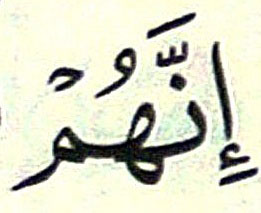 إِنَّهُمْ